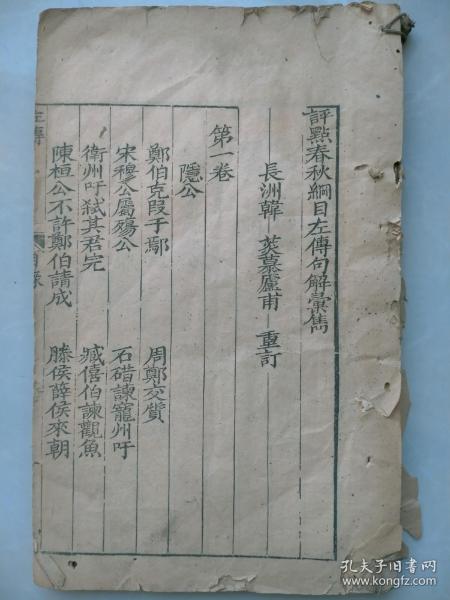 評點春秋綱目左傳句解彙雋
長洲韓菼慕廬甫重訂
第一卷
隱公
鄭伯克段于鄢
周鄭交質
宋穆公屬殤公
石碏諫寵州吁
衛州吁弑其君完
臧僖伯諫觀魚
陳桓公不許鄭伯請成
滕侯薛侯來朝
左傳
目錄
孔夫子旧书网
www.kongfz.com